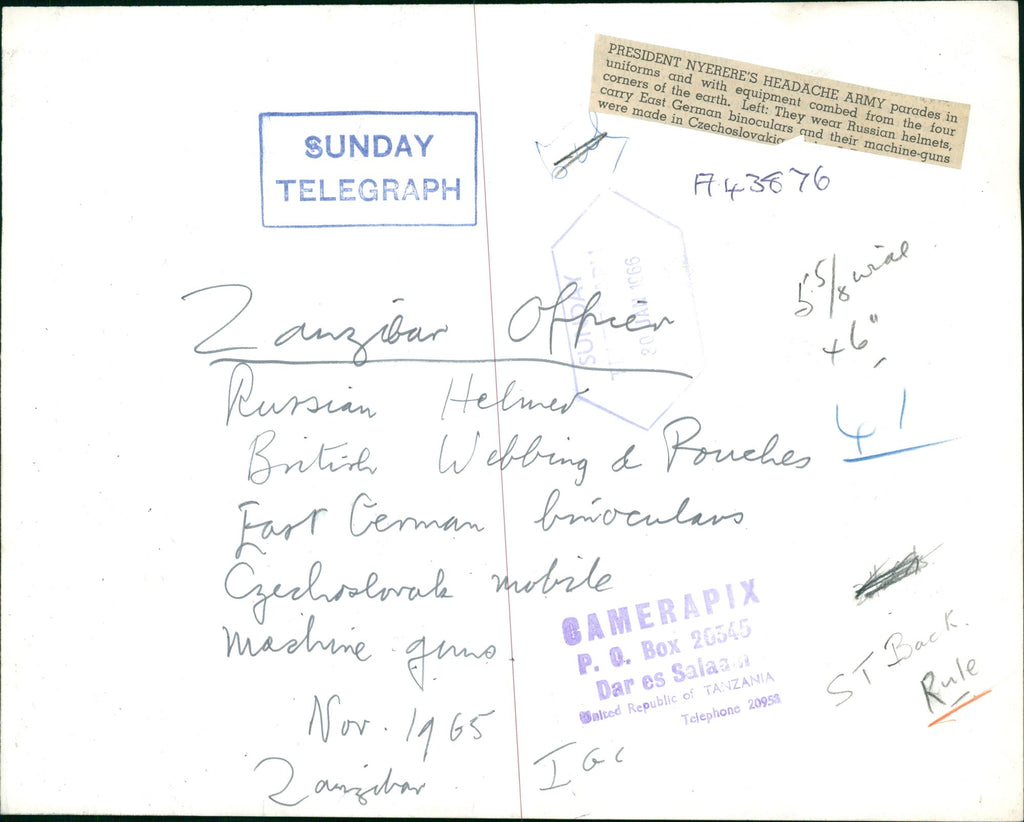 PRESIDENT NYERERE'S HEADACHE ARMY parades in
uniforms and with equipment combed from the four
corners of the earth. Left: They wear Russian helmets,
carry East German binoculars and their machine-guns
were made in Czechoslovakia
SUNDAY
TELEGRAPH
A43876
SUNDAY
20 JAN 1966
5 5/8 wide
+6"
Zanzibar Officer
Russian Helmet
41
British Webbing & Pouches
East German binoculars
Czechoslovak mobile
machine guns
CAMERAPIX
P. O. Box 20545
Dar es Salaam
United Republic of TANZANIA
Telephone 20953
ST Back.
Rule
Nov. 1965
Zanzibar